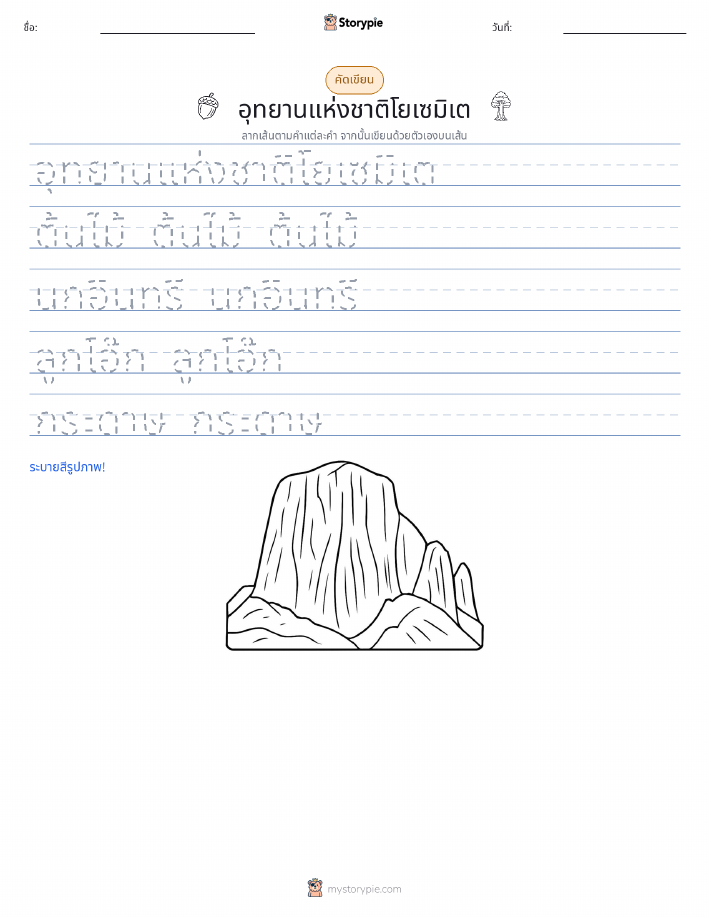 ชื่อ:
Storypie
วันที่:
คัดเขียน
อุทยานแห่งชาติโยเซมิเต
ลากเส้นตามคำแต่ละคำ จากนั้นเขียนด้วยตัวเองบนเส้น
อุทยานแห่งชาติโยเซมิเต
ต้นไม้ ต้นไม้ ต้นไม้
นกอินทรี นกอินทรี
ลูกโอ๊ก ลูกโอ๊ก
กระดาษ กระดาษ
ระบายสีรูปภาพ!
mystorypie.com